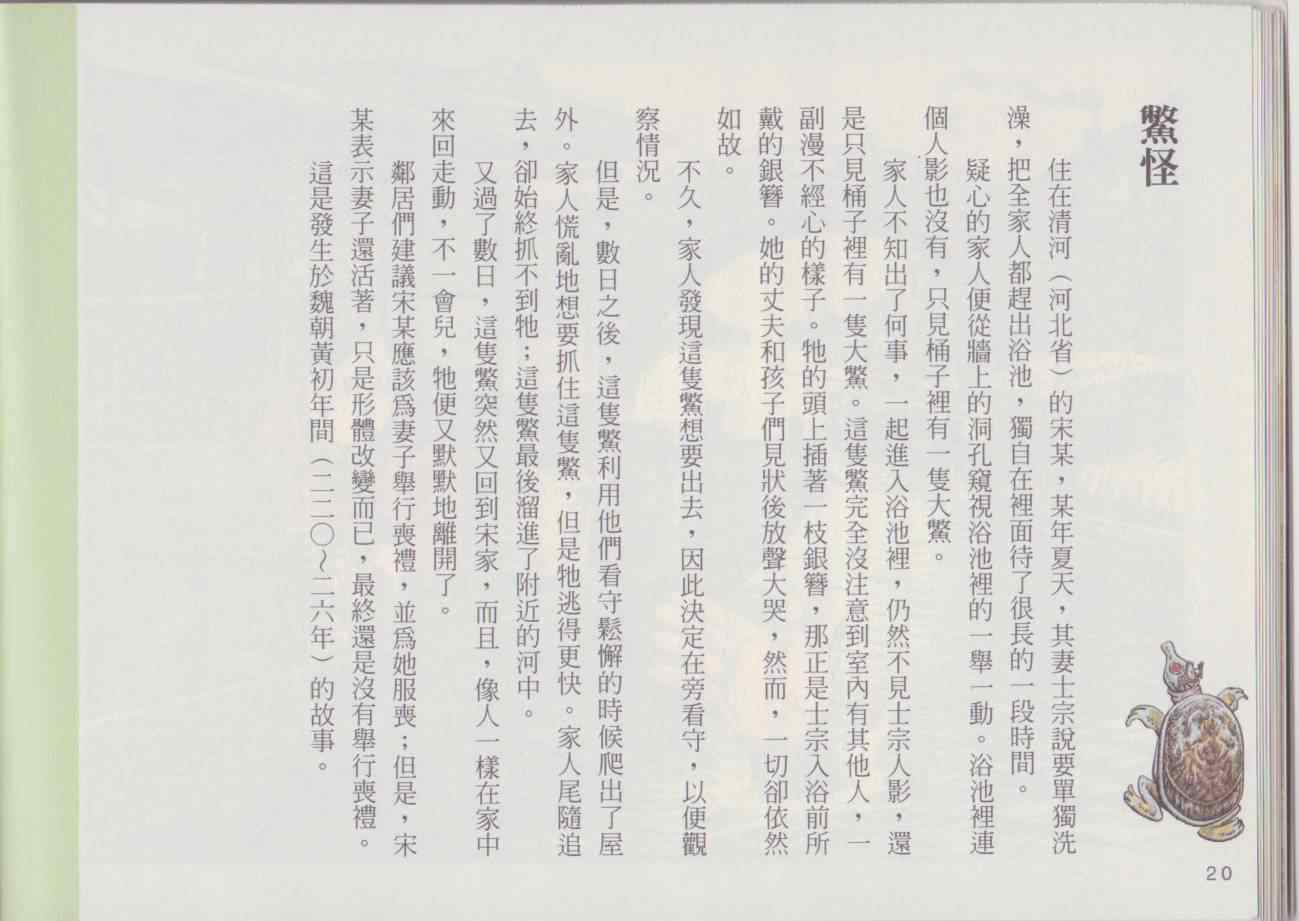 鱉怪
住在清河（河北省）的宋某，某年夏天，其妻士宗說要單獨洗
澡，把全家人都趕出浴池，獨自在裡面待了很長的一段時間。
疑心的家人便從牆上的洞孔窺視浴池裡的一舉一動。浴池裡連
個人影也沒有，只見桶子裡有一隻大鱉。
家人不知出了何事，一起進入浴池裡，仍然不見士宗人影，還
是只見桶子裡有一隻大鱉。這隻鱉完全沒注意到室內有其他人，一
副漫不經心的樣子。牠的頭上插著一枝銀簪，那正是士宗入浴前所
戴的銀簪。她的丈夫和孩子們見狀後放聲大哭，然而，一切卻依然
如故。
不久，家人發現這隻鱉想要出去，因此決定在旁看守，以便觀
察情況。
但是，數日之後，這隻鱉利用他們看守鬆懈的時候爬出了屋
外。家人慌亂地想要抓住這隻鱉，但是牠逃得更快。家人尾隨追
去，卻始終抓不到牠；這隻鱉最後溜進了附近的河中。
又過了數日，這隻鱉突然又回到宋家，而且，像人一樣在家中
來回走動，不一會兒，牠便又默默地離開了。
鄰居們建議宋某應該為妻子舉行喪禮，並為她服喪；但是，宋
某表示妻子還活著，只是形體改變而已，最終還是沒有舉行喪禮。
這是發生於魏朝黃初年間（二二〇～二六年）的故事。
20